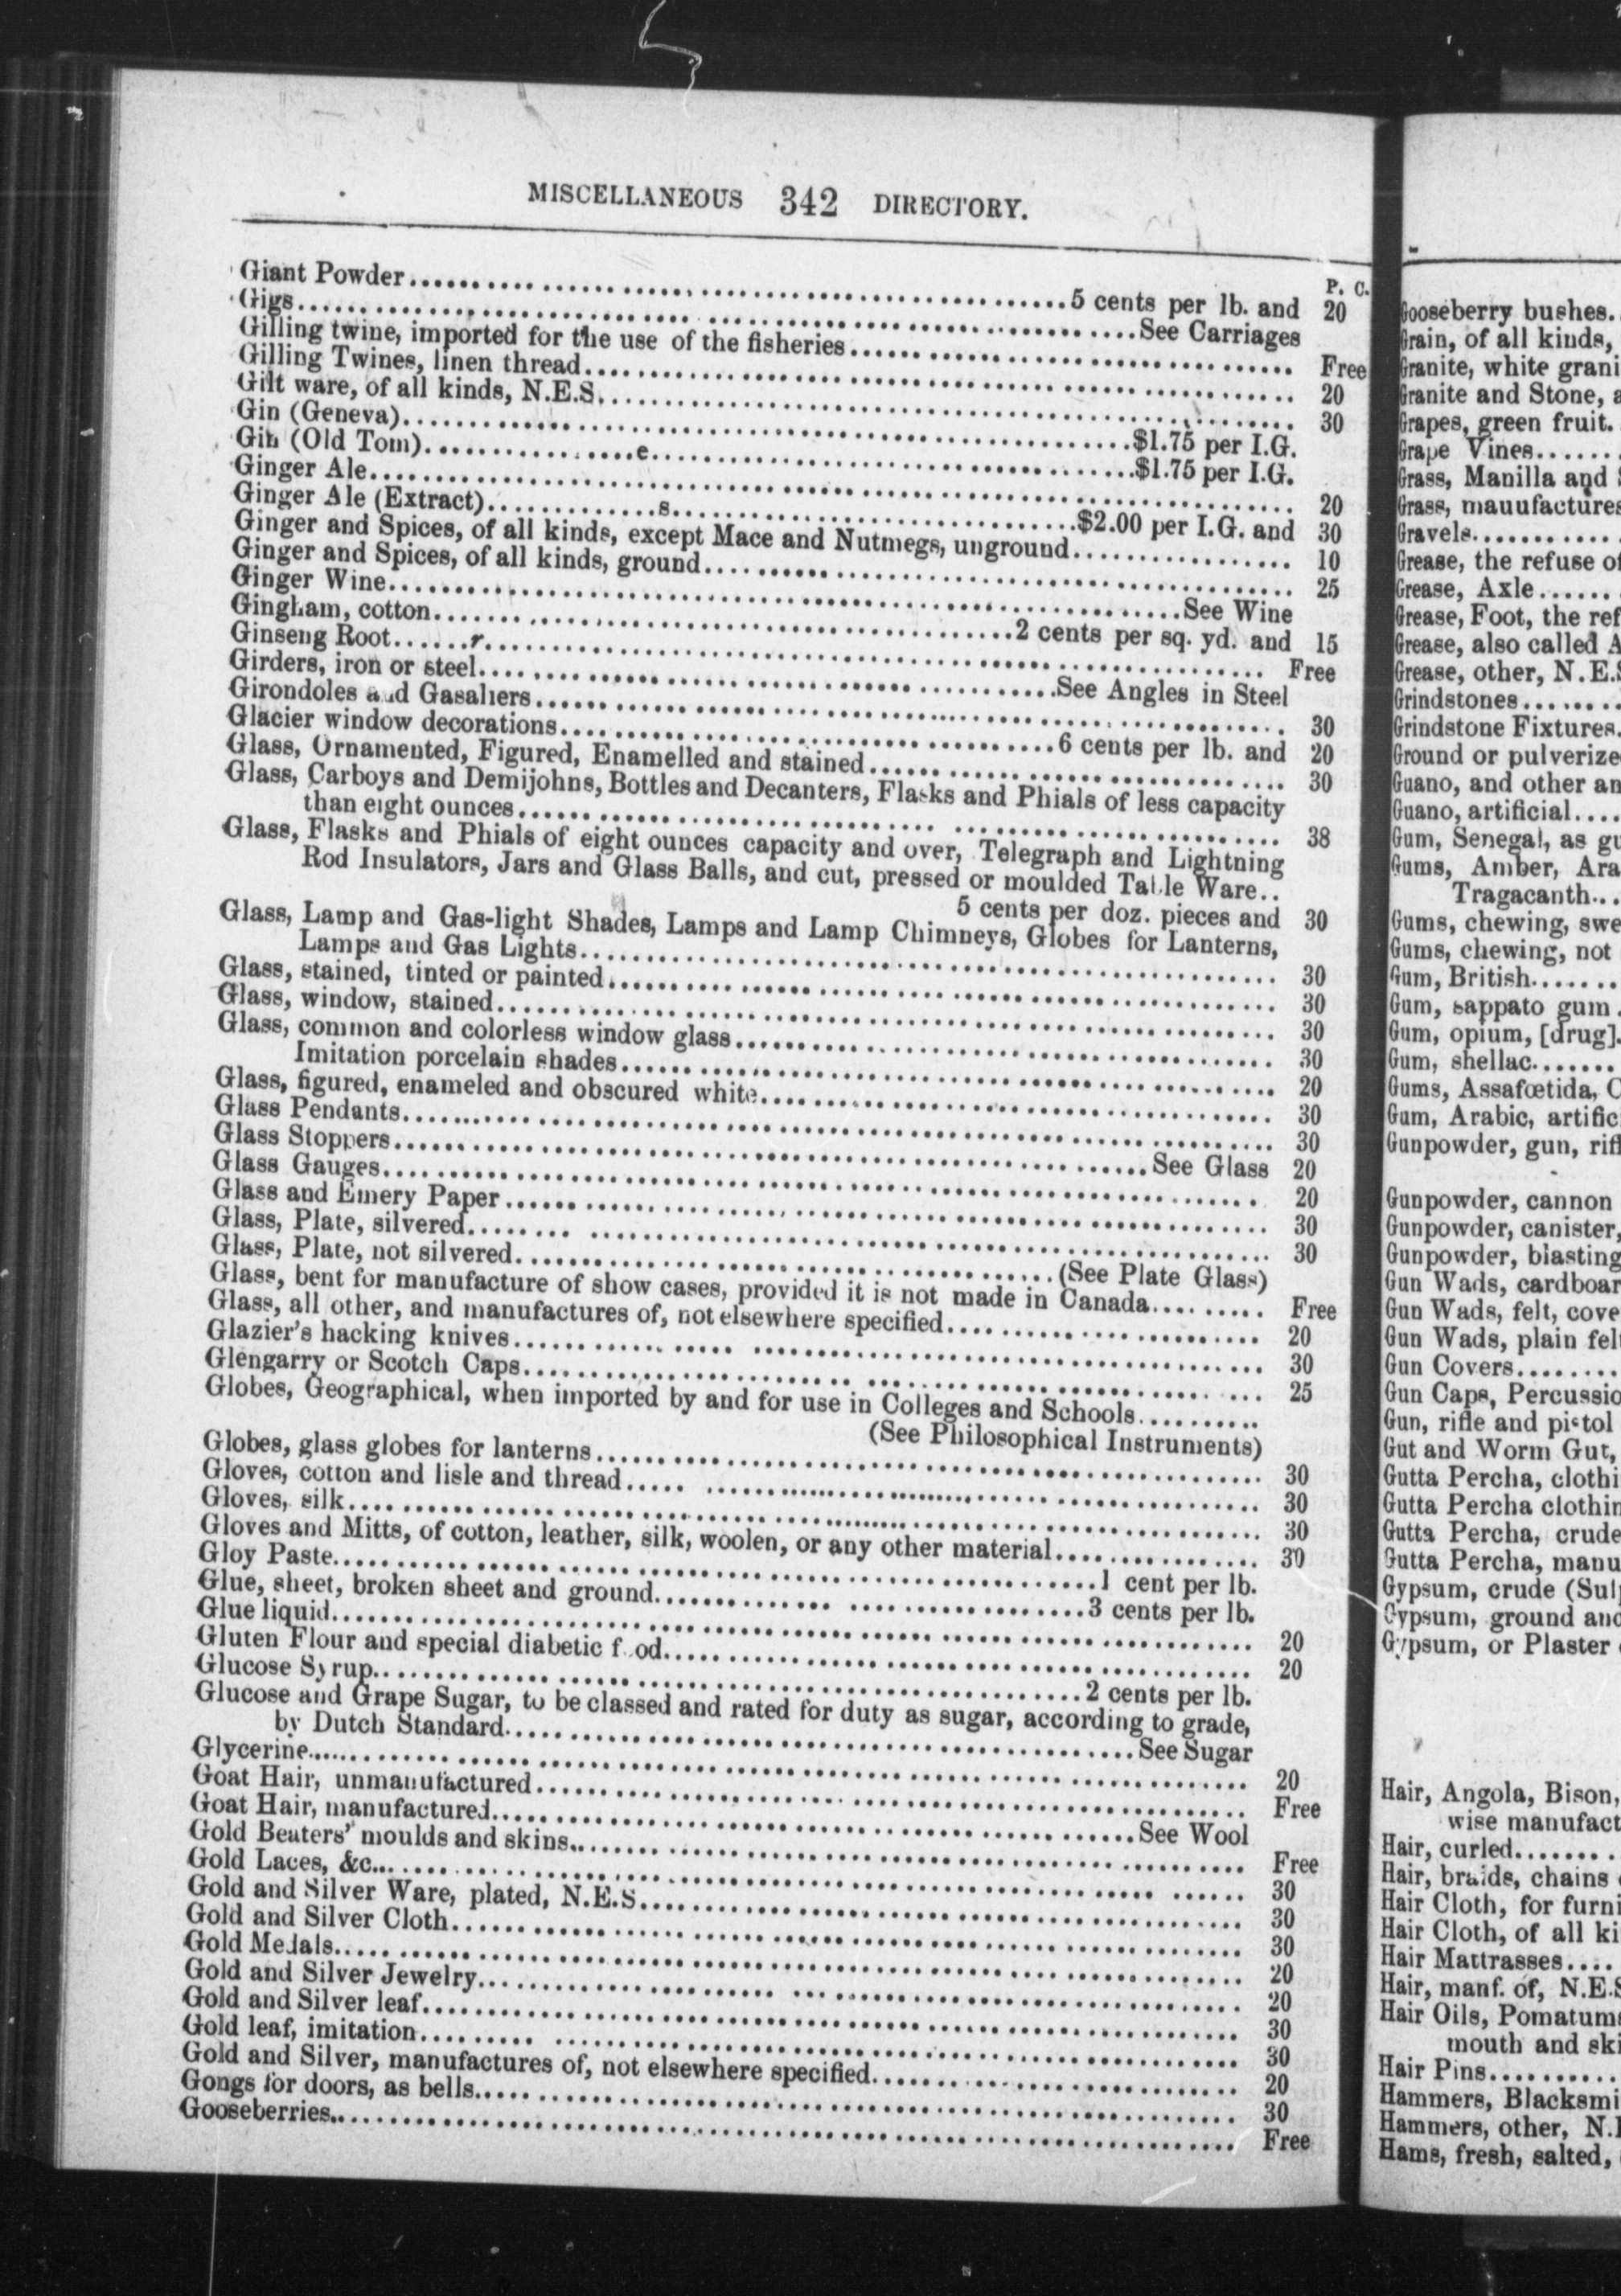 MISCELLANEOUS 342 DIRECTORY.
P. C.
Giant Powder........5 cents per lb. and 20
Gigs........See Carriages
Gilling twine, imported for the use of the fisheries........Free
Gilling Twines, linen thread........20
Gilt ware, of all kinds, N.E.S........30
Gin (Geneva)........$1.75 per I.G.
Gin (Old Tom)........e........$1.75 per I.G.
Ginger Ale........20
Ginger Ale (Extract)........s........$2.00 per I.G. and 30
Ginger and Spices, of all kinds, except Mace and Nutmegs, unground........10
Ginger and Spices, of all kinds, ground........25
Ginger Wine........See Wine
Gingham, cotton........2 cents per sq. yd. and 15
Ginseng Root.......r........Free
Girders, iron or steel........See Angles in Steel
Girondoles and Gasaliers........30
Glacier window decorations........6 cents per lb. and 20
Glass, Ornamented, Figured, Enamelled and stained........30
Glass, Carboys and Demijohns, Bottles and Decanters, Flasks and Phials of less capacity
than eight ounces........38
Glass, Flasks and Phials of eight ounces capacity and over, Telegraph and Lightning
Rod Insulators, Jars and Glass Balls, and cut, pressed or moulded Table Ware..
5 cents per doz. pieces and 30
Glass, Lamp and Gas-light Shades, Lamps and Lamp Chimneys, Globes for Lanterns,
Lamps and Gas Lights........30
Glass, stained, tinted or painted........30
Glass, window, stained........30
Glass, common and colorless window glass........30
Imitation porcelain shades........20
Glass, figured, enameled and obscured white........30
Glass Pendants........30
Glass Stoppers........See Glass 20
Glass Gauges........20
Glass and Emery Paper........30
Glass, Plate, silvered........30
Glass, Plate, not silvered........(See Plate Glass)
Glass, bent for manufacture of show cases, provided it is not made in Canada........Free
Glass, all other, and manufactures of, not elsewhere specified........20
Glazier's hacking knives........30
Glengarry or Scotch Caps........25
Globes, Geographical, when imported by and for use in Colleges and Schools........
(See Philosophical Instruments)
Globes, glass globes for lanterns........30
Gloves, cotton and lisle and thread........30
Gloves, silk........30
Gloves and Mitts, of cotton, leather, silk, woolen, or any other material........30
Gloy Paste........1 cent per lb.
Glue, sheet, broken sheet and ground........3 cents per lb.
Glue liquid........20
Gluten Flour and special diabetic food........20
Glucose Syrup........2 cents per lb.
Glucose and Grape Sugar, to be classed and rated for duty as sugar, according to grade,
by Dutch Standard........See Sugar
Glycerine........20
Goat Hair, unmanufactured........Free
Goat Hair, manufactured........See Wool
Gold Beaters' moulds and skins........Free
Gold Laces, &c........30
Gold and Silver Ware, plated, N.E.S........30
Gold and Silver Cloth........30
Gold Medals........20
Gold and Silver Jewelry........20
Gold and Silver leaf........30
Gold leaf, imitation........30
Gold and Silver, manufactures of, not elsewhere specified........20
Gongs for doors, as bells........30
Gooseberries........Free
Gooseberry bushes.
Grain, of all kinds,
Granite, white grani
Granite and Stone, a
Grapes, green fruit.
Grape Vines.......
Grass, Manilla and
Grass, manufactures
Gravels...........
Grease, the refuse of
Grease, Axle......
Grease, Foot, the ref
Grease, also called A
Grease, other, N.E.S
Grindstones.......
Grindstone Fixtures.
Ground or pulverize
Guano, and other an
Guano, artificial....
Gum, Senegal, as gu
Gums, Amber, Ara
Tragacanth...
Gums, chewing, swe
Gums, chewing, not
Gum, British.......
Gum, sappato gum.
Gum, opium, [drug].
Gum, shellac.......
Gums, Assafœtida, C
Gum, Arabic, artific
Gunpowder, gun, rifl
Gunpowder, cannon
Gunpowder, canister,
Gunpowder, blasting
Gun Wads, cardboar
Gun Wads, felt, cove
Gun Wads, plain felt
Gun Covers........
Gun Caps, Percussio
Gun, rifle and pistol
Gut and Worm Gut,
Gutta Percha, clothi
Gutta Percha clothin
Gutta Percha, crude
Gutta Percha, manu
Gypsum, crude (Sul
Gypsum, ground and
Gypsum, or Plaster
Hair, Angola, Bison,
wise manufact
Hair, curled........
Hair, braids, chains
Hair Cloth, for furni
Hair Cloth, of all ki
Hair Mattrasses....
Hair, manf. of, N.E.S
Hair Oils, Pomatums
mouth and ski
Hair Pins..........
Hammers, Blacksmi
Hammers, other, N.E
Hams, fresh, salted,